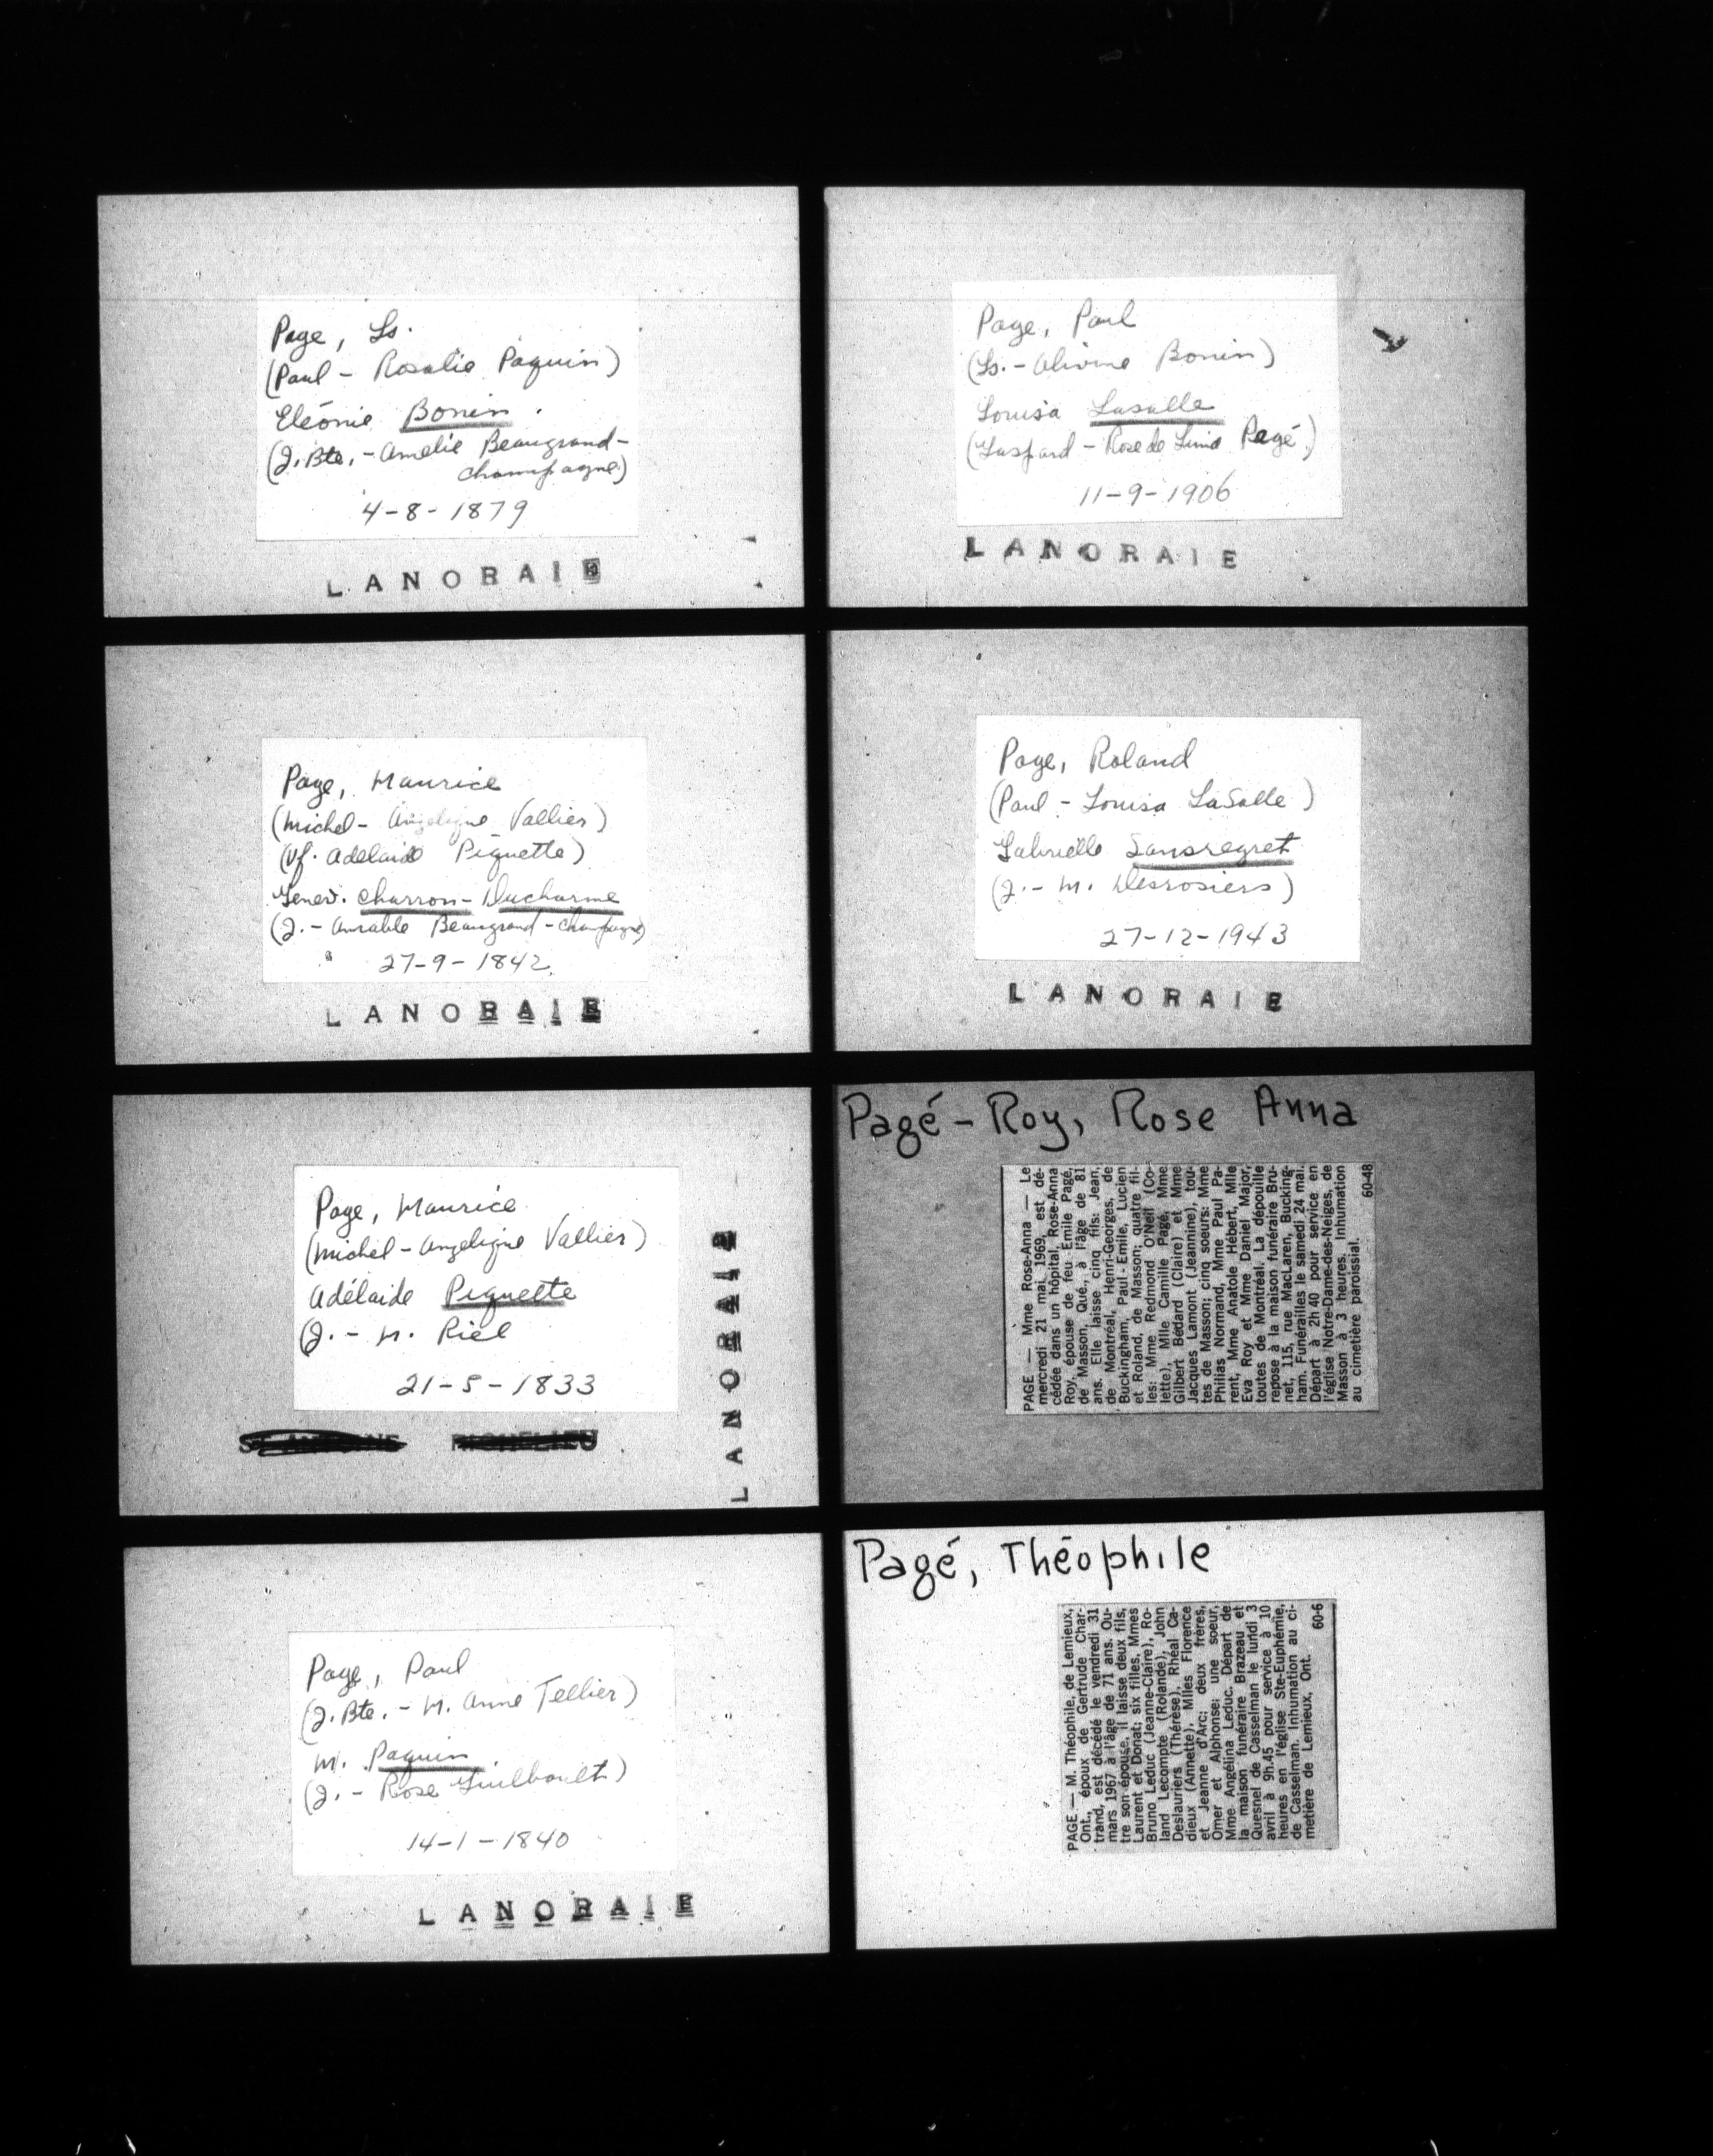 Page, Ls.
(Paul - Rosalie Paquin)
Eléonie Bonin.
(J. Bte. - Amélie Beaugrand-
Champagne)
4-8-1879
LANORAIE
Page, Maurice
(Michel - Angelique Vallier)
(Vf. Adelaide Piquette)
Genev. Charron-Ducharme
(J. - Amable Beaugrand-Champagne)
27-9-1842
LANORAIE
Page, Maurice
(Michel - Angelique Vallier)
Adélaide Piquette
(J. - M. Riel
21-5-1833
LANORAIE
Page, Paul
(J. Bte. - M. Anne Tellier)
M. Paquin
(J. - Rose Guilbault)
14-1-1840
LANORAIE
Page, Paul
(Ls. - Olivine Bonin)
Louisa Lasalle
(Gaspard - Rose de Lima Pagé)
11-9-1906
LANORAIE
Page, Roland
(Paul - Louisa LaSalle)
Gabrielle Sansregret
(J. - M. Desrosiers)
27-12-1943
LANORAIE
Pagé-Roy, Rose Anna
PAGE — Mme Rose-Anna — Le
mercredi 21 mai 1969, est dé-
cédée dans un hôpital, Rose-Anna
Roy, épouse de feu Emile Pagé,
de Masson, Qué., à l'âge de 81
ans. Elle laisse cinq fils: Jean,
de Montréal, Henri-Georges, de
Buckingham, Paul-Emile, Lucien
et Roland, de Masson; quatre fil-
les: Mme Redmond O'Neil (Co-
lette), Mlle Camille Pagé, Mme
Gilbert Bédard (Claire) et Mme
Jacques Lamont (Jeannine), tou-
tes de Masson; cinq soeurs: Mme
Philias Normand, Mme Paul Pa-
rent, Mme Anatole Hébert, Mlle
Eva Roy et Mme Daniel Major,
toutes de Montréal. La dépouille
repose à la maison funéraire Bru-
net, 115, rue MacLaren, Bucking-
ham. Funérailles le samedi 24 mai.
Départ à 2h 40 pour service en
l'église Notre-Dame-des-Neiges, de
Masson à 3 heures. Inhumation
au cimetière paroissial.
60-48
Pagé, Théophile
PAGE — M. Théophile, de Lemieux,
Ont., époux de Gertrude Char-
trand, est décédé le vendredi 31
mars 1967 à l'âge de 71 ans. Ou-
tre son épouse, il laisse deux fils,
Laurent et Donat; six filles, Mmes
Bruno Leduc (Jeanne-Claire), Ro-
land Lecompte (Rolande), John
Deslauriers (Thérèse), Rhéal Ca-
dieux (Annette), Mlles Florence
et Jeanne d'Arc; deux frères,
Omer et Alphonse; une soeur,
Mme Angélina Leduc. Départ de
la maison funéraire Brazeau et
Quesnel de Casselman le lundi 3
avril à 9h.45 pour service à 10
heures en l'église Ste-Euphémie,
de Casselman. Inhumation au ci-
metière de Lemieux, Ont.
60-6